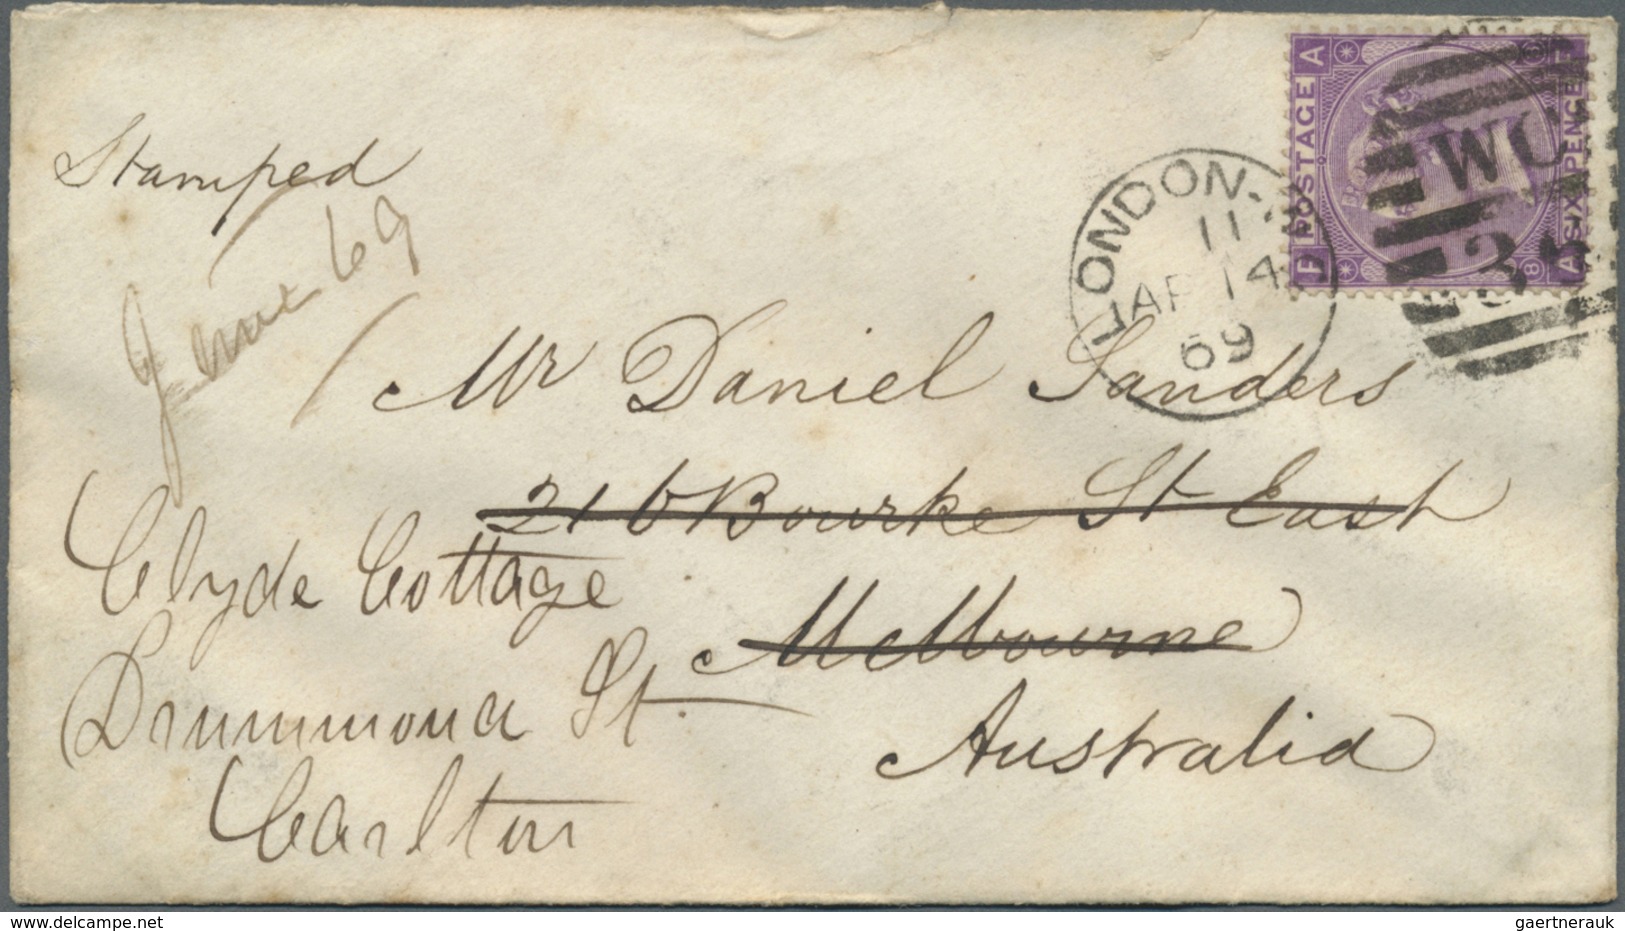 Stamped
June 69
POSTAGE
SIXPENCE
A
F
8
A
WC
LONDON
11
AP 14
69
Mr Daniel Sanders
216 Bourke St East
Melbourne
Australia
Clyde Cottage
Drummond St.
Carlton
www.delcampe.net
gaertnerauk